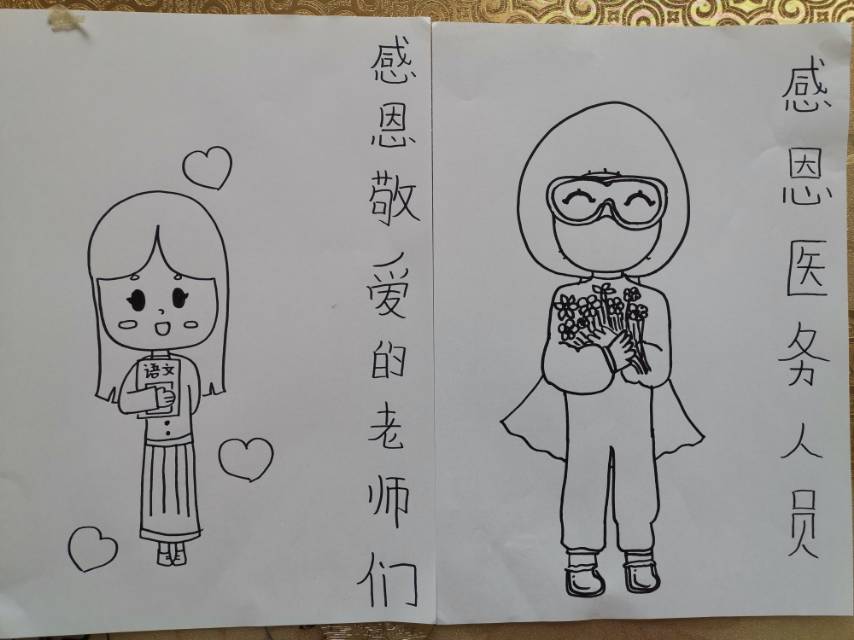 感恩敬爱的老师们
语文
感恩医务人员